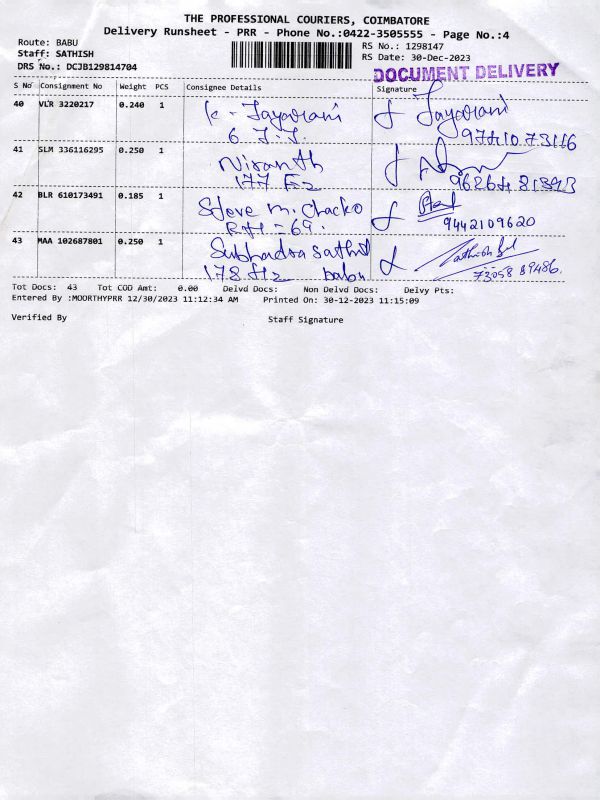 THE PROFESSIONAL COURIERS, COIMBATORE
Delivery Runsheet - PRR - Phone No.:0422-3505555 - Page No.:4
Route: BABU
RS No.: 1298147
Staff: SATHISH
RS Date: 30-Dec-2023
DRS No.: DCJB129814704
DOCUMENT DELIVERY
S No Consignment No Weight PCS Consignee Details Signature
40 VLR 3220217 0.240 1 K. Jayarani Jayarani
6 J.J. 97410 73116
41 SLM 336116295 0.250 1 Nisanth
177 F2
42 BLR 610173491 0.185 1 Steve M. Chacko
69. 9442109620
43 MAA 102687801 0.250 1 Subhadra Sathil
178 babu 73058 89486.
Tot Docs: 43 Tot COD Amt: 0.00 Delvd Docs: Non Delvd Docs: Delvy Pts:
Entered By :MOORTHYPRR 12/30/2023 11:12:34 AM Printed On: 30-12-2023 11:15:09
Verified By Staff Signature